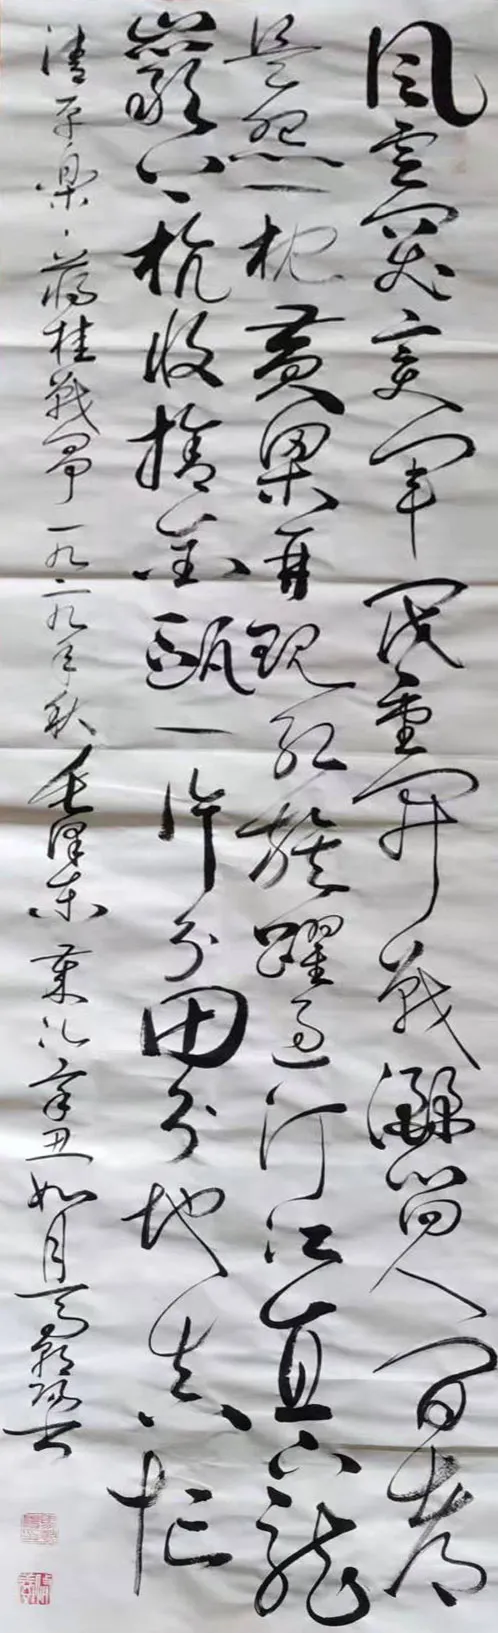 風雲突變軍閥重開戰灑向人間都
是怨一枕黃粱再現紅旗躍過汀江直下龍
巖上杭收拾金甌一片分田分地真忙
清平樂、蔣桂戰爭一九二九年秋毛澤東辛丑如月書